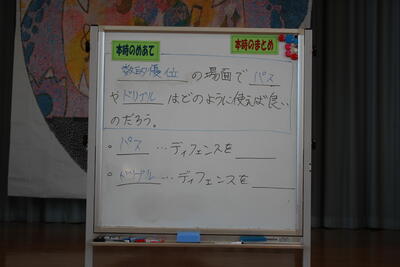 本時のめあて
本時のまとめ
数的優位 の場面で パス
や ドリブル はどのように使えば良い
のだろう。
・ パス … ディフェンスを
・ ドリブル … ディフェンスを